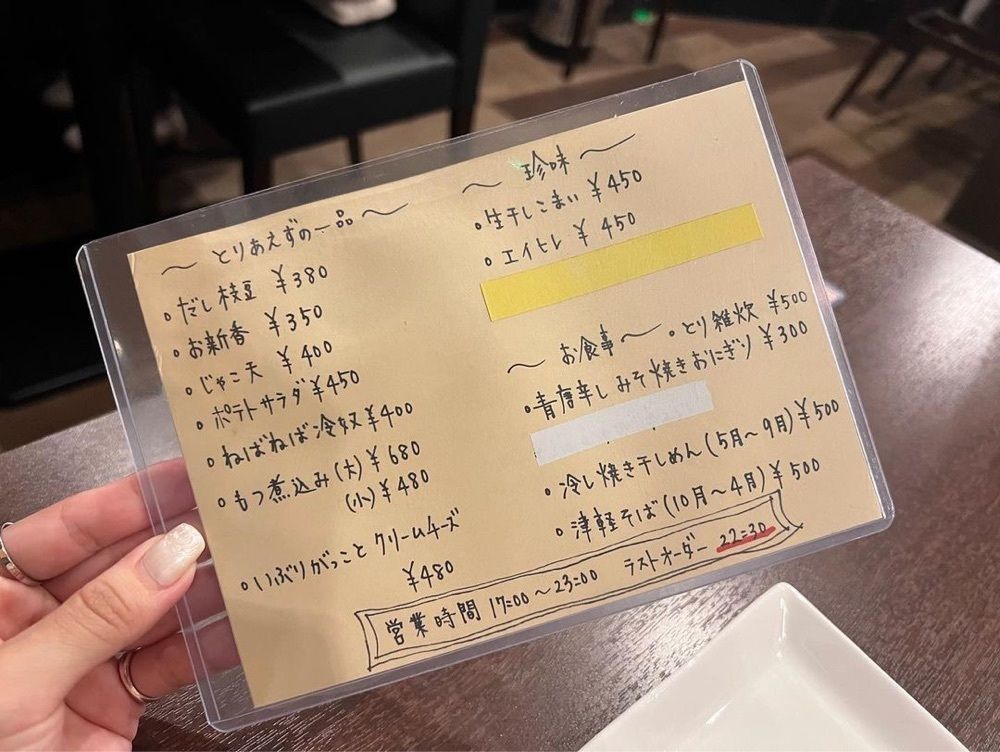 〜 とりあえずの一品 〜
・だし枝豆 ¥380
・お新香 ¥350
・じゃこ天 ¥400
・ポテトサラダ ¥450
・ねばねば冷奴 ¥400
・もつ煮込み(大) ¥680
(小) ¥480
・いぶりがっことクリームチーズ
¥480
〜 珍味 〜
・生干しこまい ¥450
・エイヒレ ¥450
〜 お食事 〜
・とり雑炊 ¥500
・青唐辛しみそ焼きおにぎり ¥300
・冷し焼き干しめん(5月〜9月) ¥500
・津軽そば(10月〜4月) ¥500
営業時間 17:00〜23:00 ラストオーダー 22:30